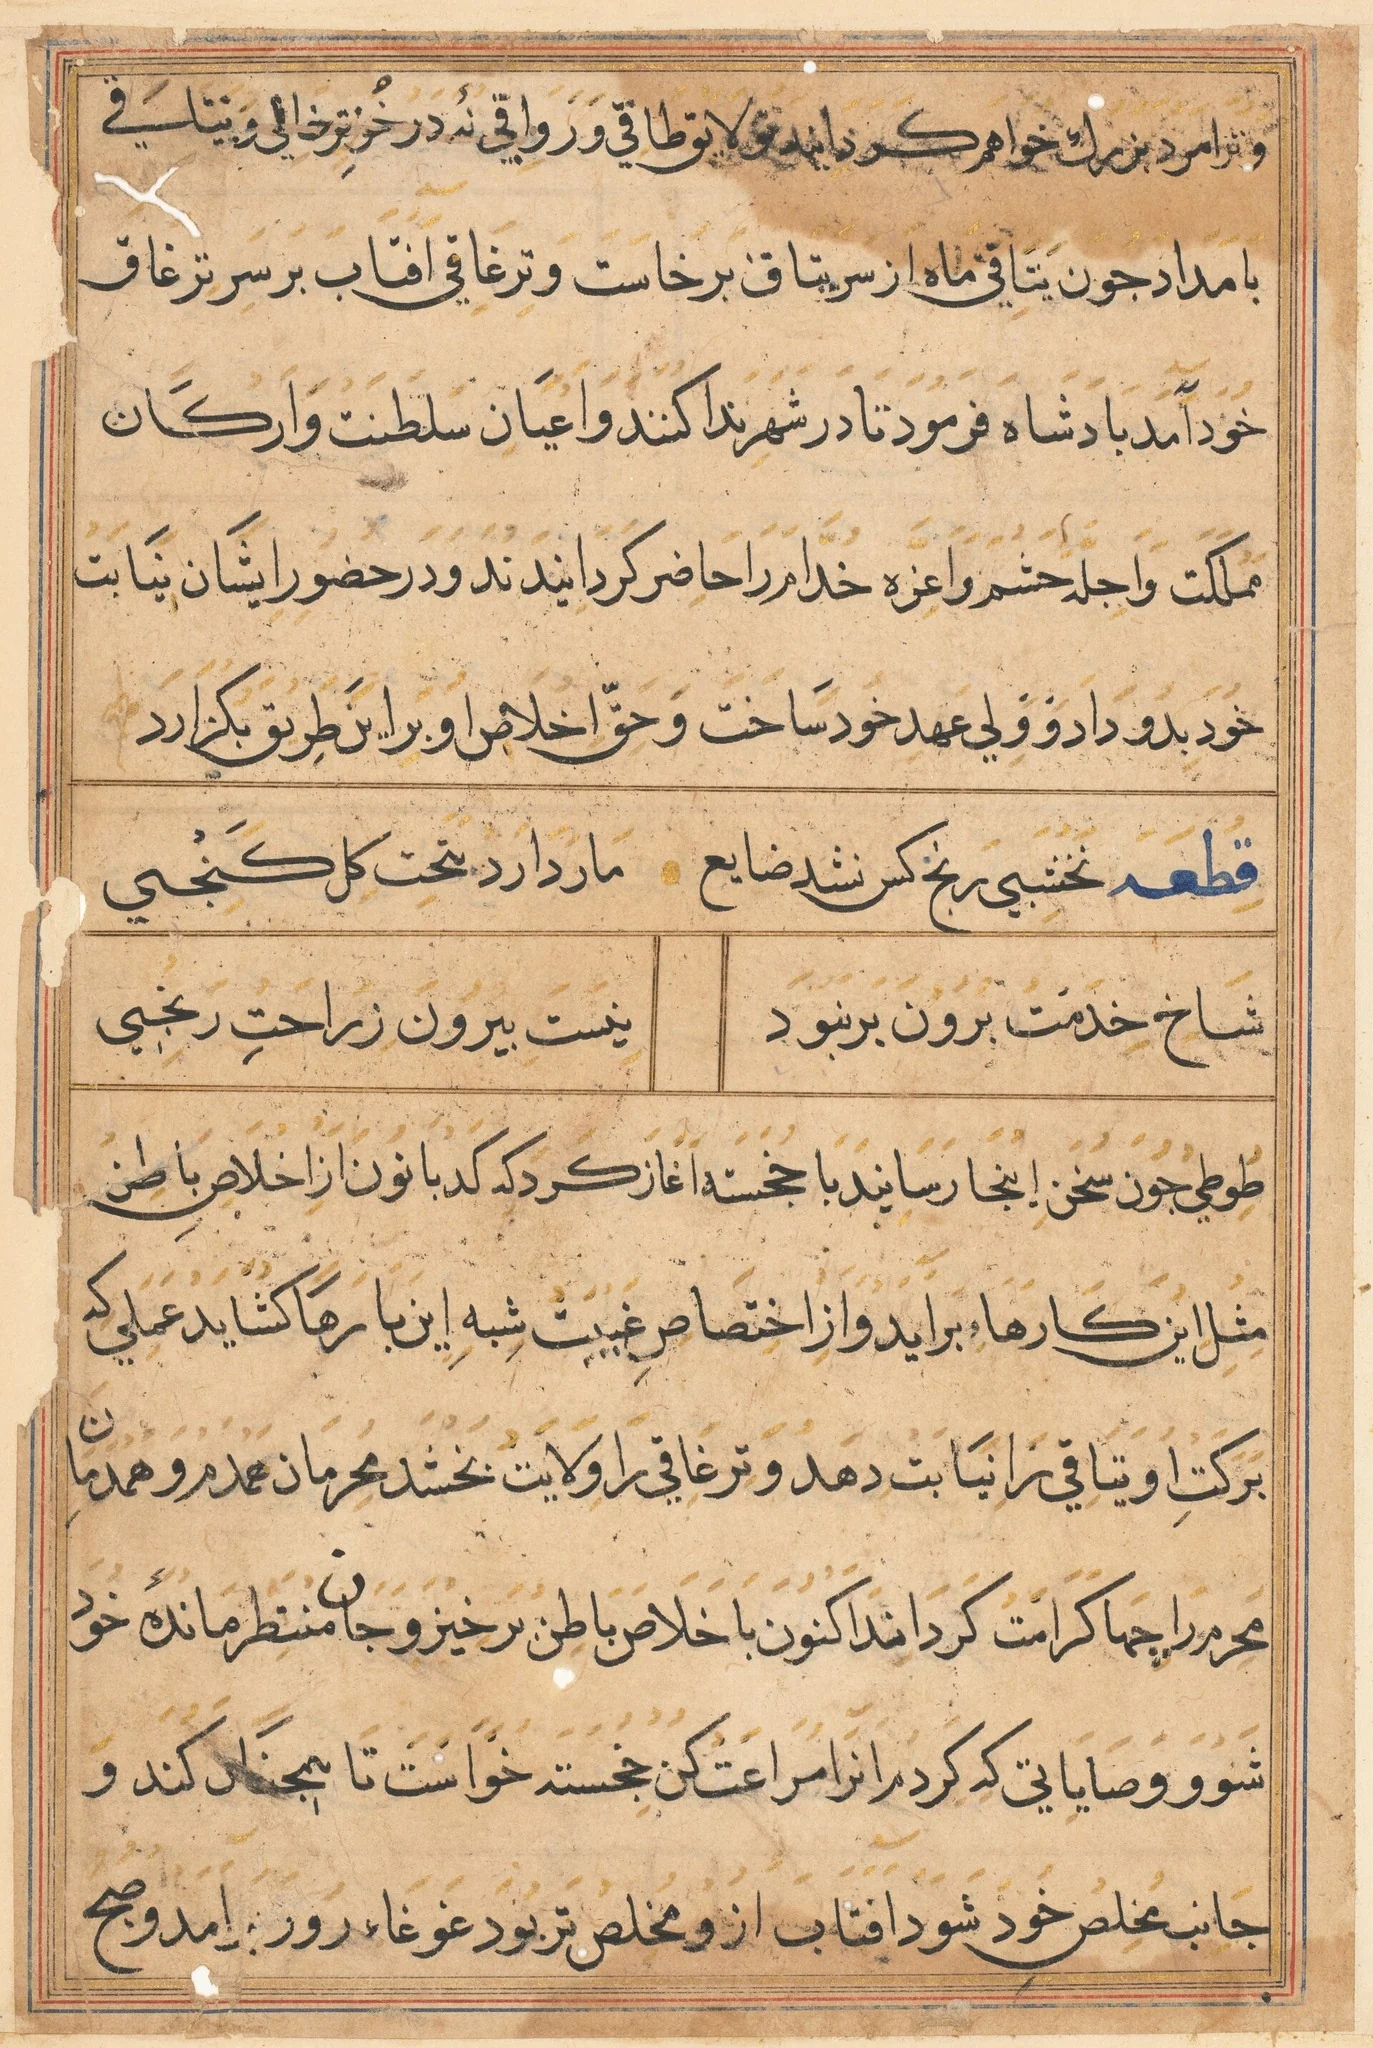 و ترا مرد بزرك خواهم كردانيد تو لايق طاقي و رواقي نه در خور ترخاني و يتاقي
بامداد جون يتاقي ماه از سر يتاق برخاست و ترغاقي آفتاب بر سر ترغاق
خود آمد بادشاه فرمود تا در شهر ندا كنند و اعيان سلطنت و اركان
مملكت و اجله حشم و اعزه خدام را حاضر كردانيدند و در حضور ايشان نيابت
خود بدو داد و ولي عهد خود ساخت و حق اخلاص او براين طريق بكزارد
قطعه نخشبي رنج كس نشد ضايع مار دارد بتحت كل كنجي
شاخ خدمت برون بر نبود نيست بيرون ز راحت رنجي
طوطي جون سخن اينجا رسانيد با خجسته آغاز كرد كه كدبانون از اخلاص باطن
مثل اين كارها برآيد و از اختصاص غيبت شبه اين بارها كشايد عملي كه
بركت او يتاقي را نيابت دهد و ترغاقي را ولايت بخشد محرمان همدم و همدمان
محرم را چها كرامت كرداند اكنون با خلاص باطن برخيز و جان منتظر مانده خود
شو و وصايايي كه كردم آنرا مراعت كن خجسته خواست تا همچنان كند و
جانب مخلص خود شود آفتاب ازو مخلص تر بود غوغاء روز برآمد و صبح